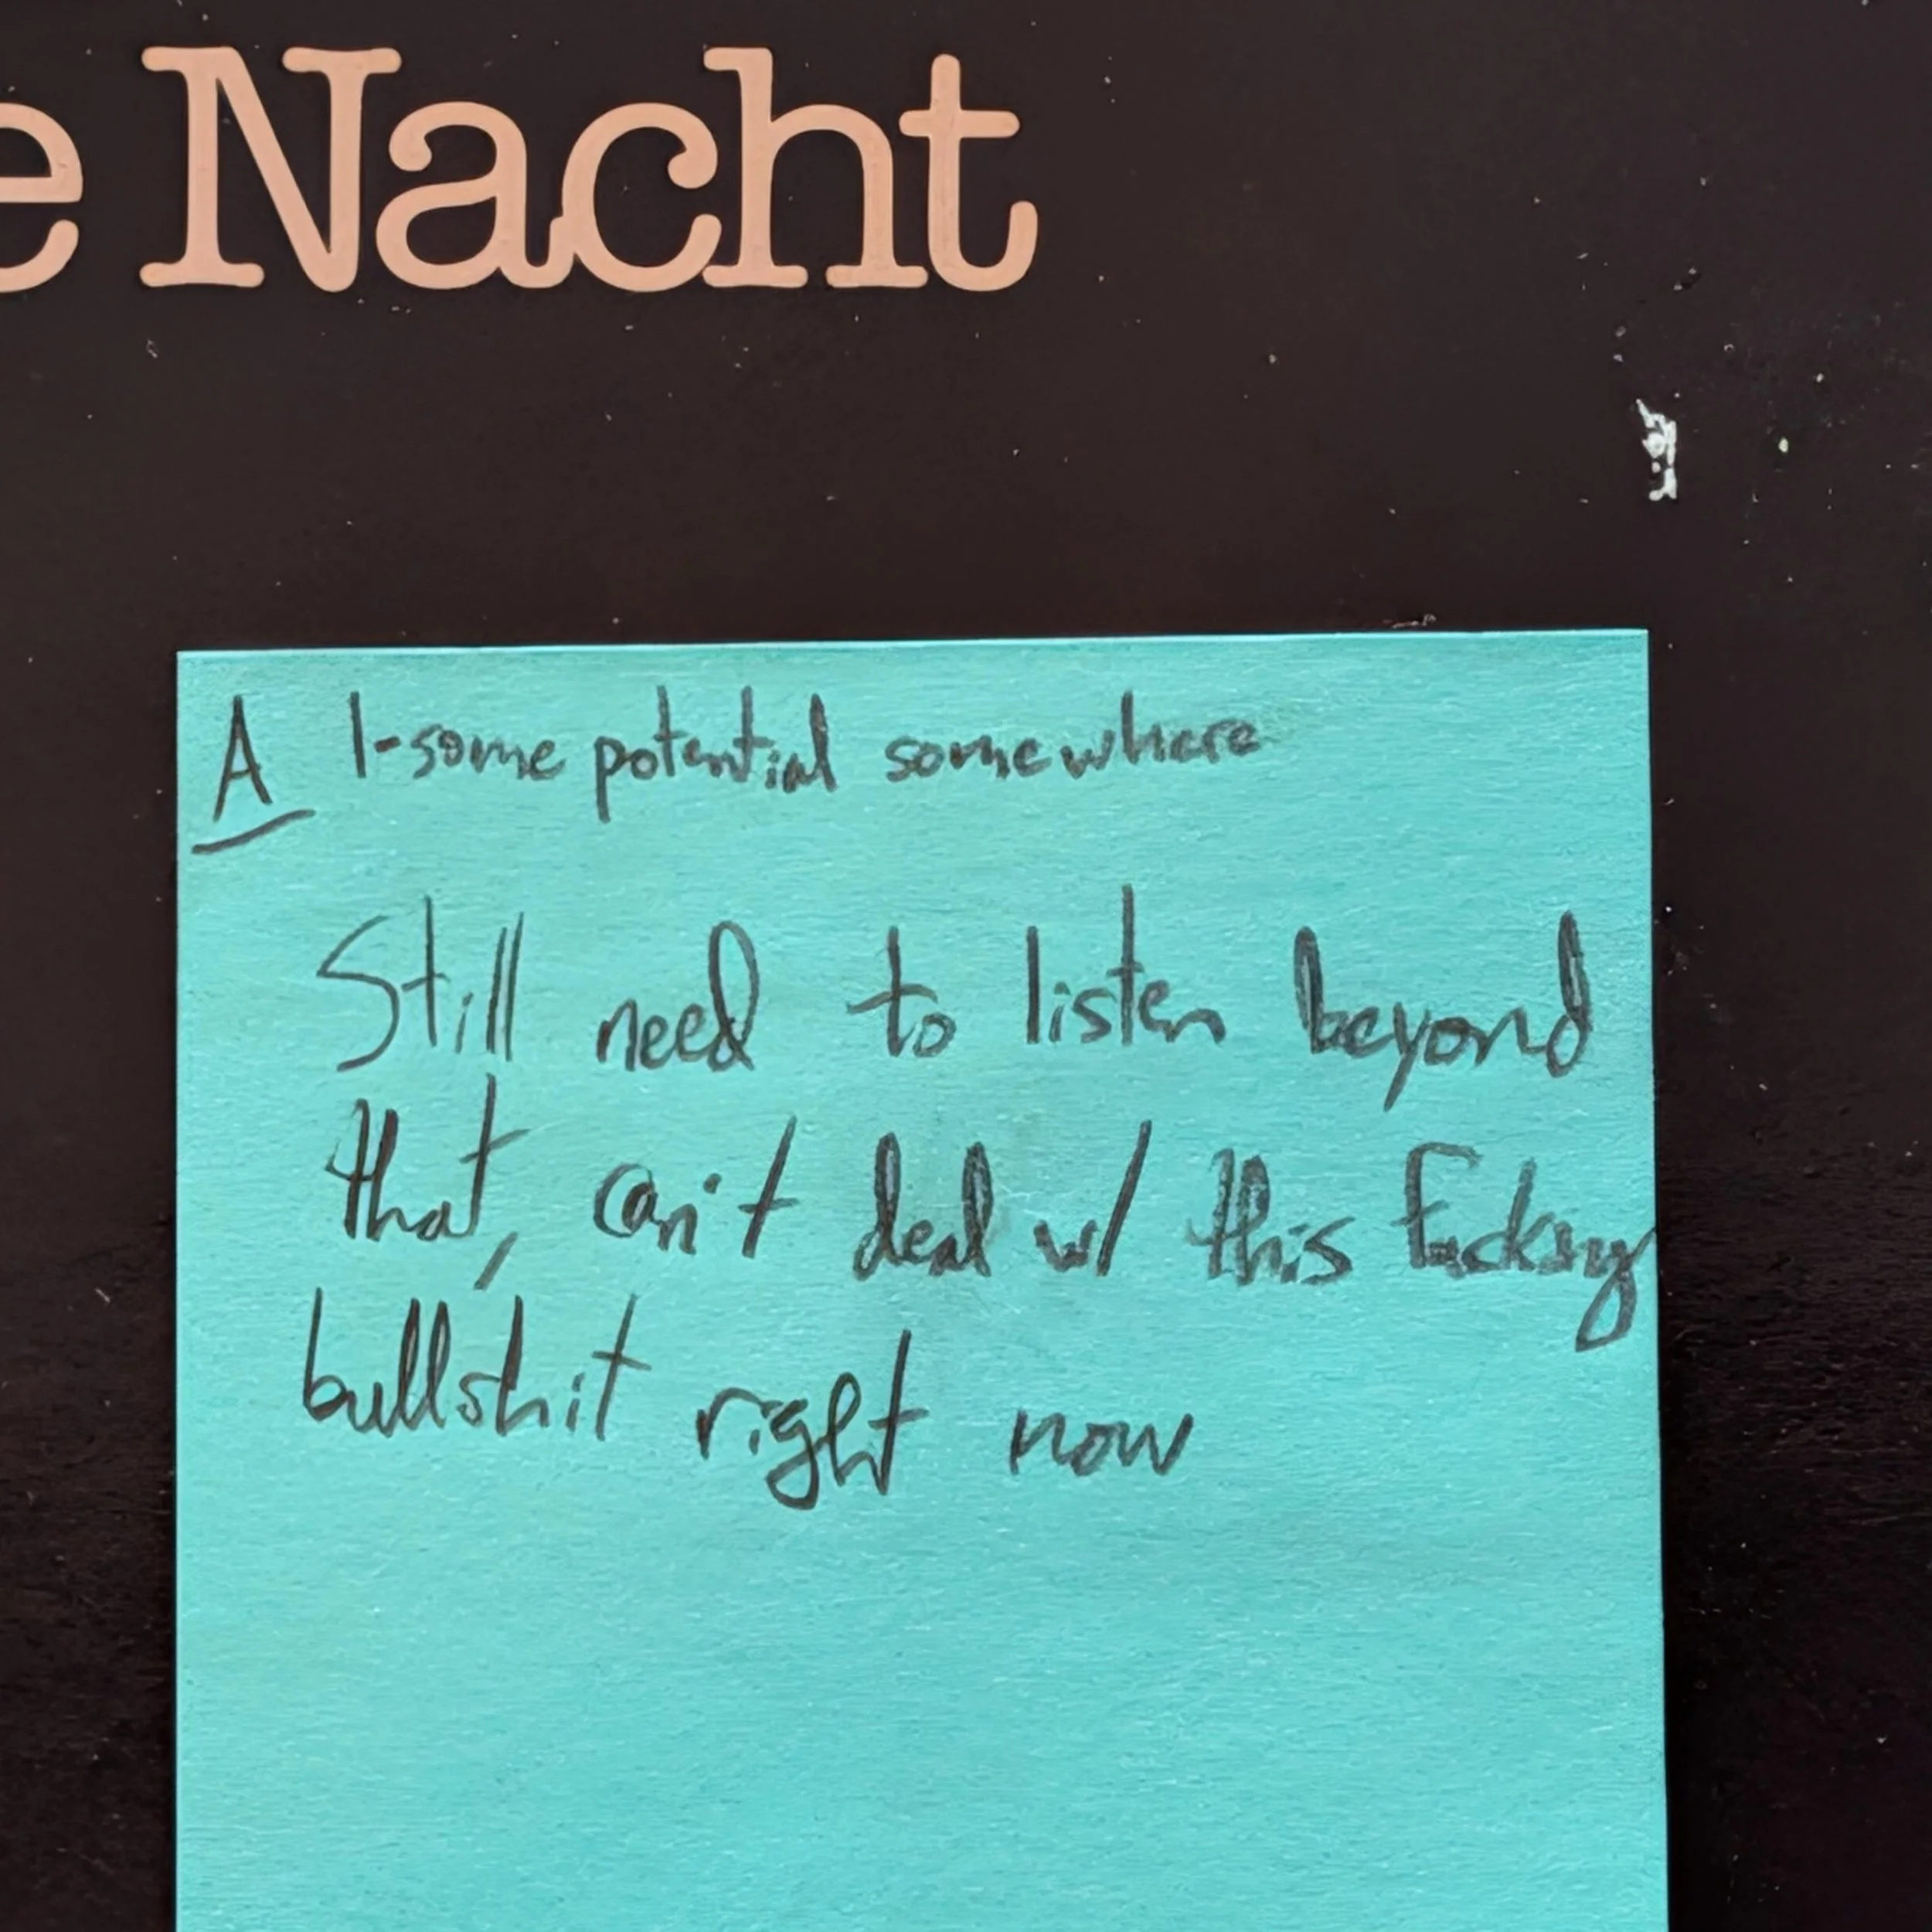 e Nacht
A 1-some potential somewhere
Still need to listen beyond
that, can't deal w/ this
bullshit right now